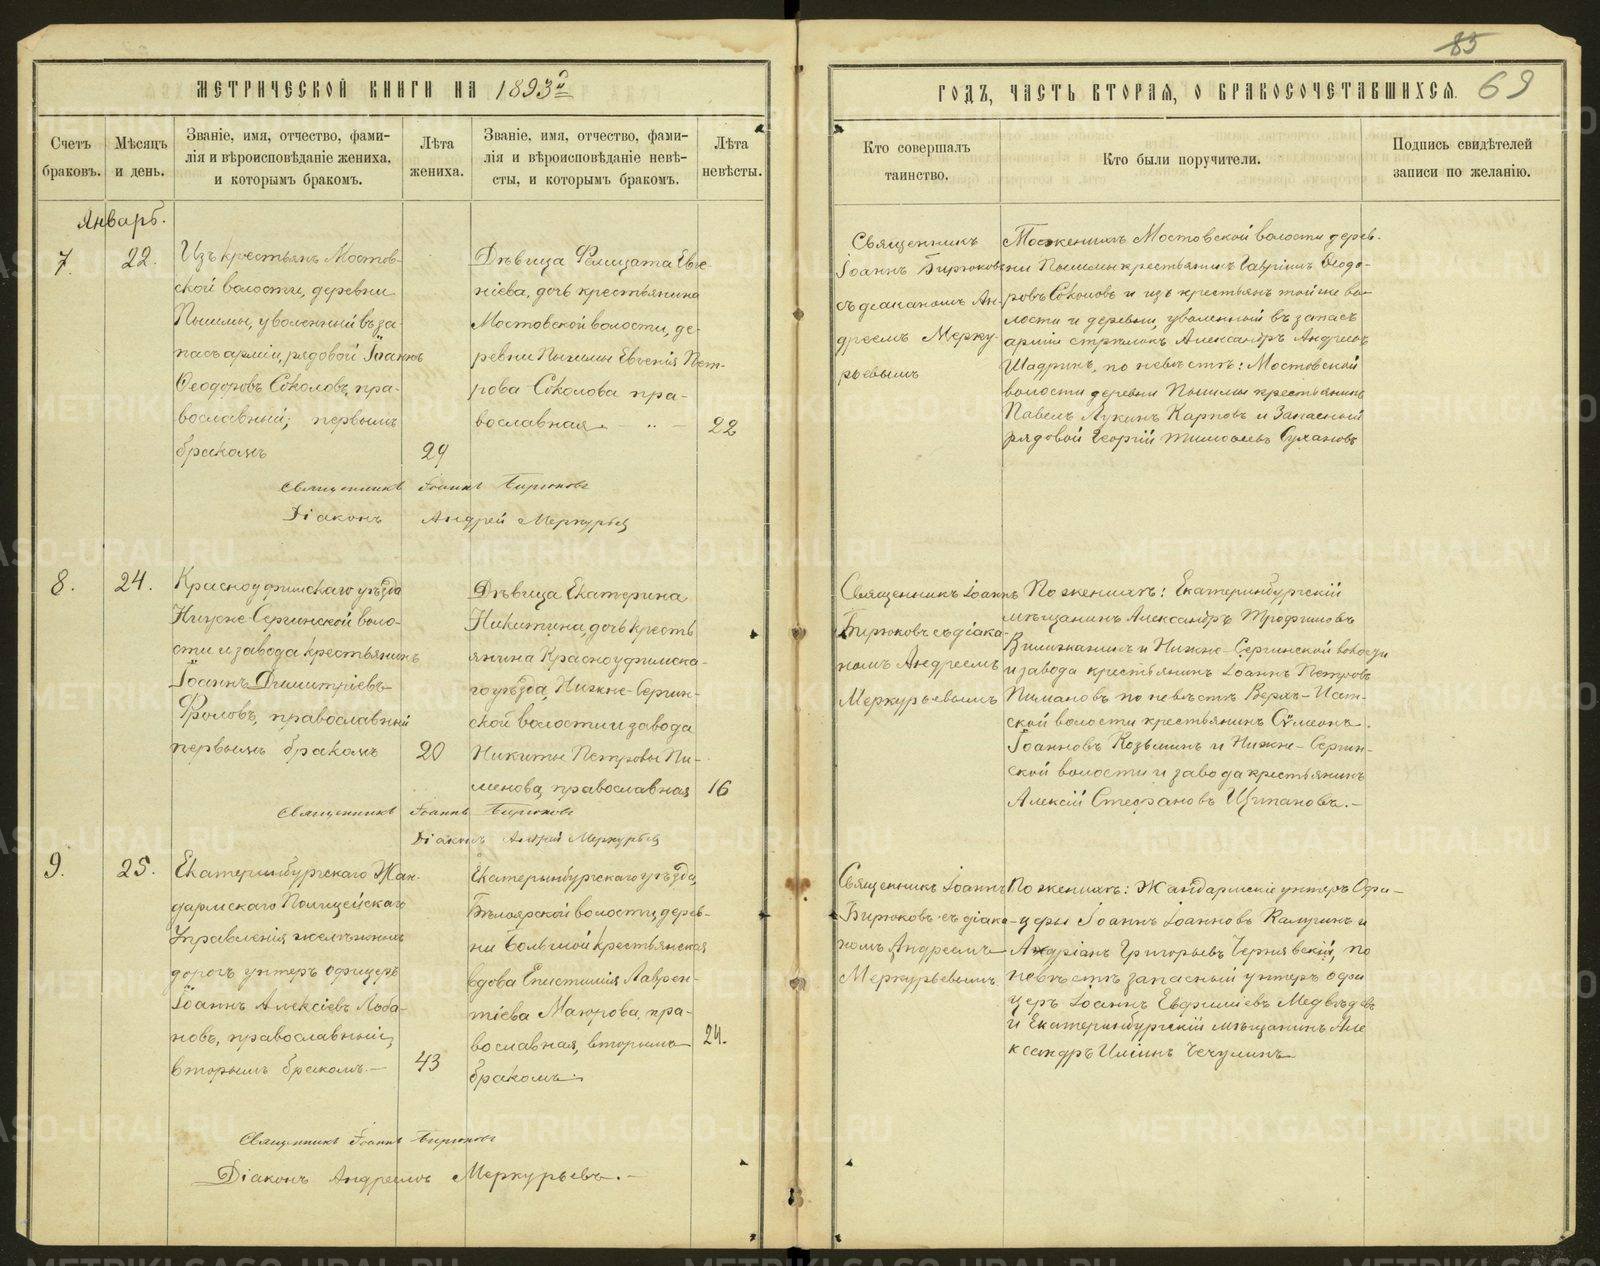 85
69
МЕТРИЧЕСКОЙ КНИГИ НА 1893
ГОДЪ, ЧАСТЬ ВТОРАЯ, О БРАКОСОЧЕТАВШИХСЯ.
Счетъ
браковъ.
Мѣсяцъ
и день.
Званіе, имя, отчество, фами-
лія и вѣроисповѣданіе жениха,
и которымъ бракомъ.
Лѣта
жениха.
Званіе, имя, отчество, фами-
лія и вѣроисповѣданіе невѣ-
сты, и которымъ бракомъ.
Лѣта
невѣсты.
Кто совершалъ
таинство.
Кто были поручители.
Подпись свидѣтелей
записи по желанію.
Январь.
7.
22.
Изъ крестьянъ Мостов-
ской волости, деревни
Пышмы, уволенный въ за-
пасъ арміи, рядовой Іоаннъ
Ѳеодоровъ Соколовъ, пра-
вославный; первымъ
бракомъ
29
Дѣвица Фелицата Евге-
ніева, дочь крестьянина
Мостовской волости, де-
ревни Пышмы Евгенія Пет-
рова Соколова пра-
вославная
22
Священникъ
Іоаннъ Бирюковъ
съ діакономъ Ан-
дреемъ Мерку-
рьевымъ
По женихѣ Мостовской волости дерев-
ни Пышмы крестьянинъ Гавріилъ Ѳеодо-
ровъ Соколовъ и изъ крестьянъ той же во-
лости и деревни, уволенный въ запасъ
арміи стрѣлокъ Александръ Андреевъ
Шадринъ, по невѣстѣ: Мостовской
волости деревни Пышмы крестьянинъ
Павелъ Лукинъ Карповъ и Запасный
рядовой Георгій Тимофеевъ Сухановъ
Священникъ Іоаннъ Бирюковъ
Діаконъ Андрей Меркурьев
8.
24.
Красноуфимскаго уѣзда
Нижне-Сергинской воло-
сти и завода крестьянинъ
Іоаннъ Димитріевъ
Фроловъ, православный
первымъ бракомъ
20
Дѣвица Екатерина
Никитина, дочь кресть
янина Красноуфимска-
го уѣзда, Нижне-Сергин-
ской волости и завода
Никиты Петрова Пи-
менова, православная
16
Священникъ Іоаннъ
Бирюковъ съ діако-
номъ Андреемъ
Меркурьевымъ
По женихѣ: Екатеринбургскій
мѣщанинъ Александръ Трофимовъ
и Нижне-Сергинской волости
и завода крестьянинъ Іоаннъ Петровъ
Пимановъ по невѣстѣ Верхъ-Исет-
ской волости крестьянинъ Сѵмеонъ
Іоанновъ Козьминъ и Нижне-Сергин-
ской волости и завода крестьянинъ
Алексій Стефановъ Щипановъ.-
Священникъ Іоаннъ Бирюковъ
Діаконъ Андрей Меркурьев
9.
25.
Екатеринбургскаго Жан-
дармскаго Полицейскаго
Управленія желѣзныхъ
дорогъ унтеръ офицеръ
Іоаннъ Алексіевъ Лоба-
новъ, православный,
вторымъ бракомъ.-
43
Екатеринбургскаго уѣзда,
Бѣлоярской волости, дерев-
ни Большой крестьянская
вдова Епистимія Лаврен-
тіева Маюрова, пра-
вославная, вторымъ
бракомъ.
24.
Священникъ Іоаннъ
Бирюковъ съ діако-
номъ Андреемъ
Меркурьевымъ
По женихѣ: Жандармскіе унтеръ Офи-
церы Іоаннъ Іоанновъ Калугинъ и
Адріанъ Григорьевъ Чернявскій, по
невѣстѣ запасный унтеръ офи
церъ Іоаннъ Евфиміевъ Медвѣдевъ
и Екатеринбургскій мѣщанинъ Але
ксандръ Иліинъ Чечулинъ
Священникъ Іоаннъ Бирюковъ
Діаконъ Андреевъ Меркурьевъ.-
METRIKI.GASO-URAL.RU